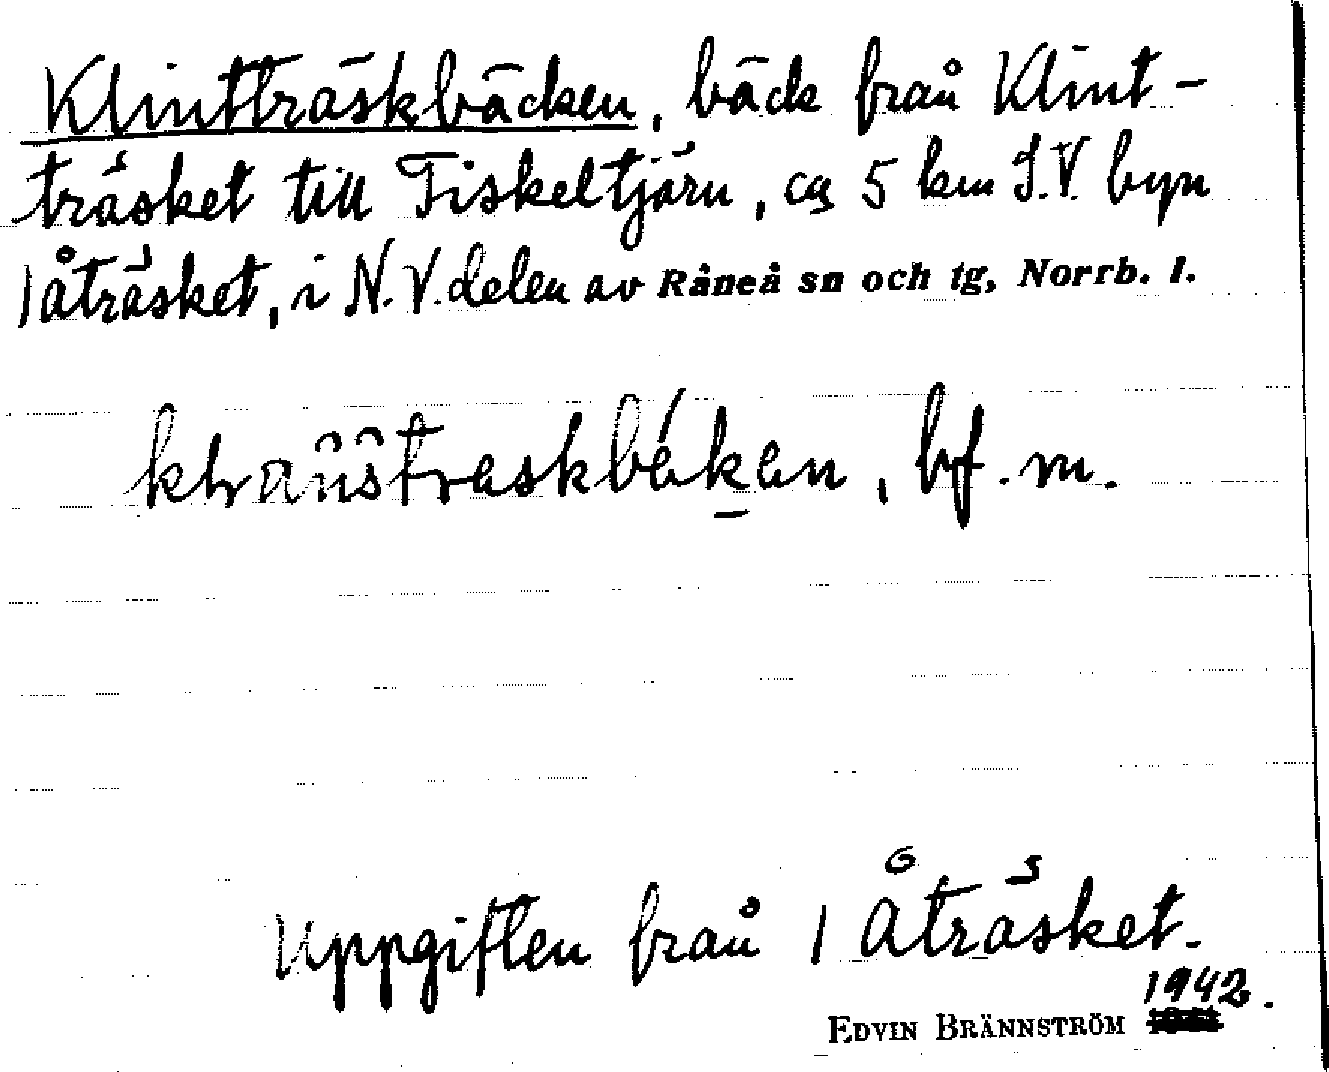 Klintträskbäcken, bäck från Klint-
träsket till Fiskeltjärn, ca 5 km S.V. byn
1 åträsket, i N.V. delen av Råneå sn och tg, Norrb. l.
bf. m.
Uppgiften från 1 åträsket.
1942.
EDVIN BRÄNNSTRÖM